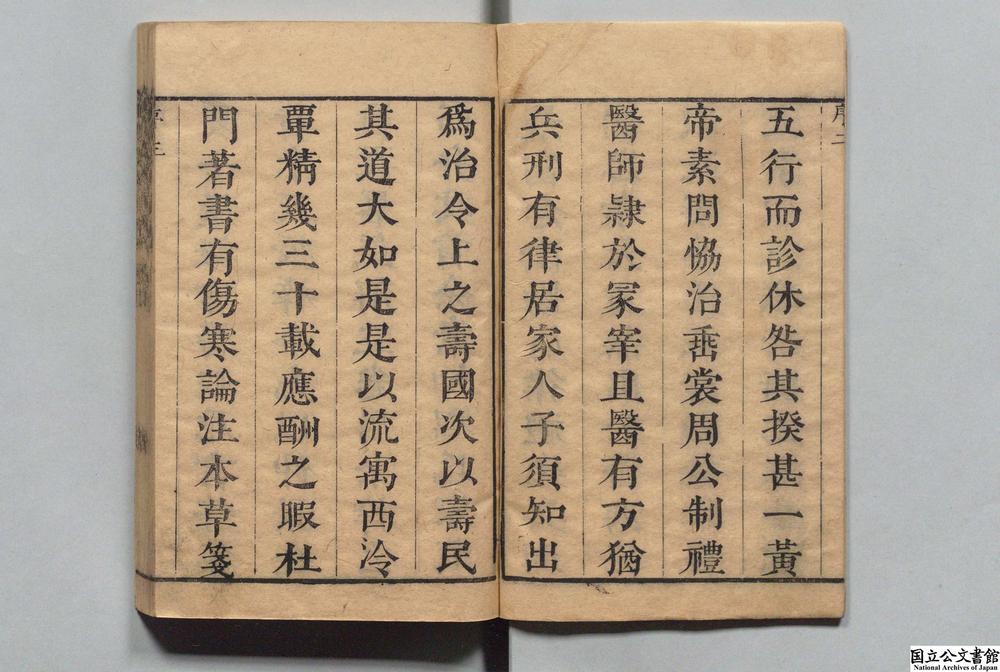 序二
五行而診休咎其揆甚一黃
帝素問恊治垂裳周公制禮
醫師隷於冢宰且醫有方猶
兵刑有律居家人子須知出
爲治令上之壽國次以壽民
其道大如是是以流寓西泠
覃精幾三十載應酬之暇杜
門著書有傷寒論注本草箋
序三
国立公文書館
National Archives of Japan